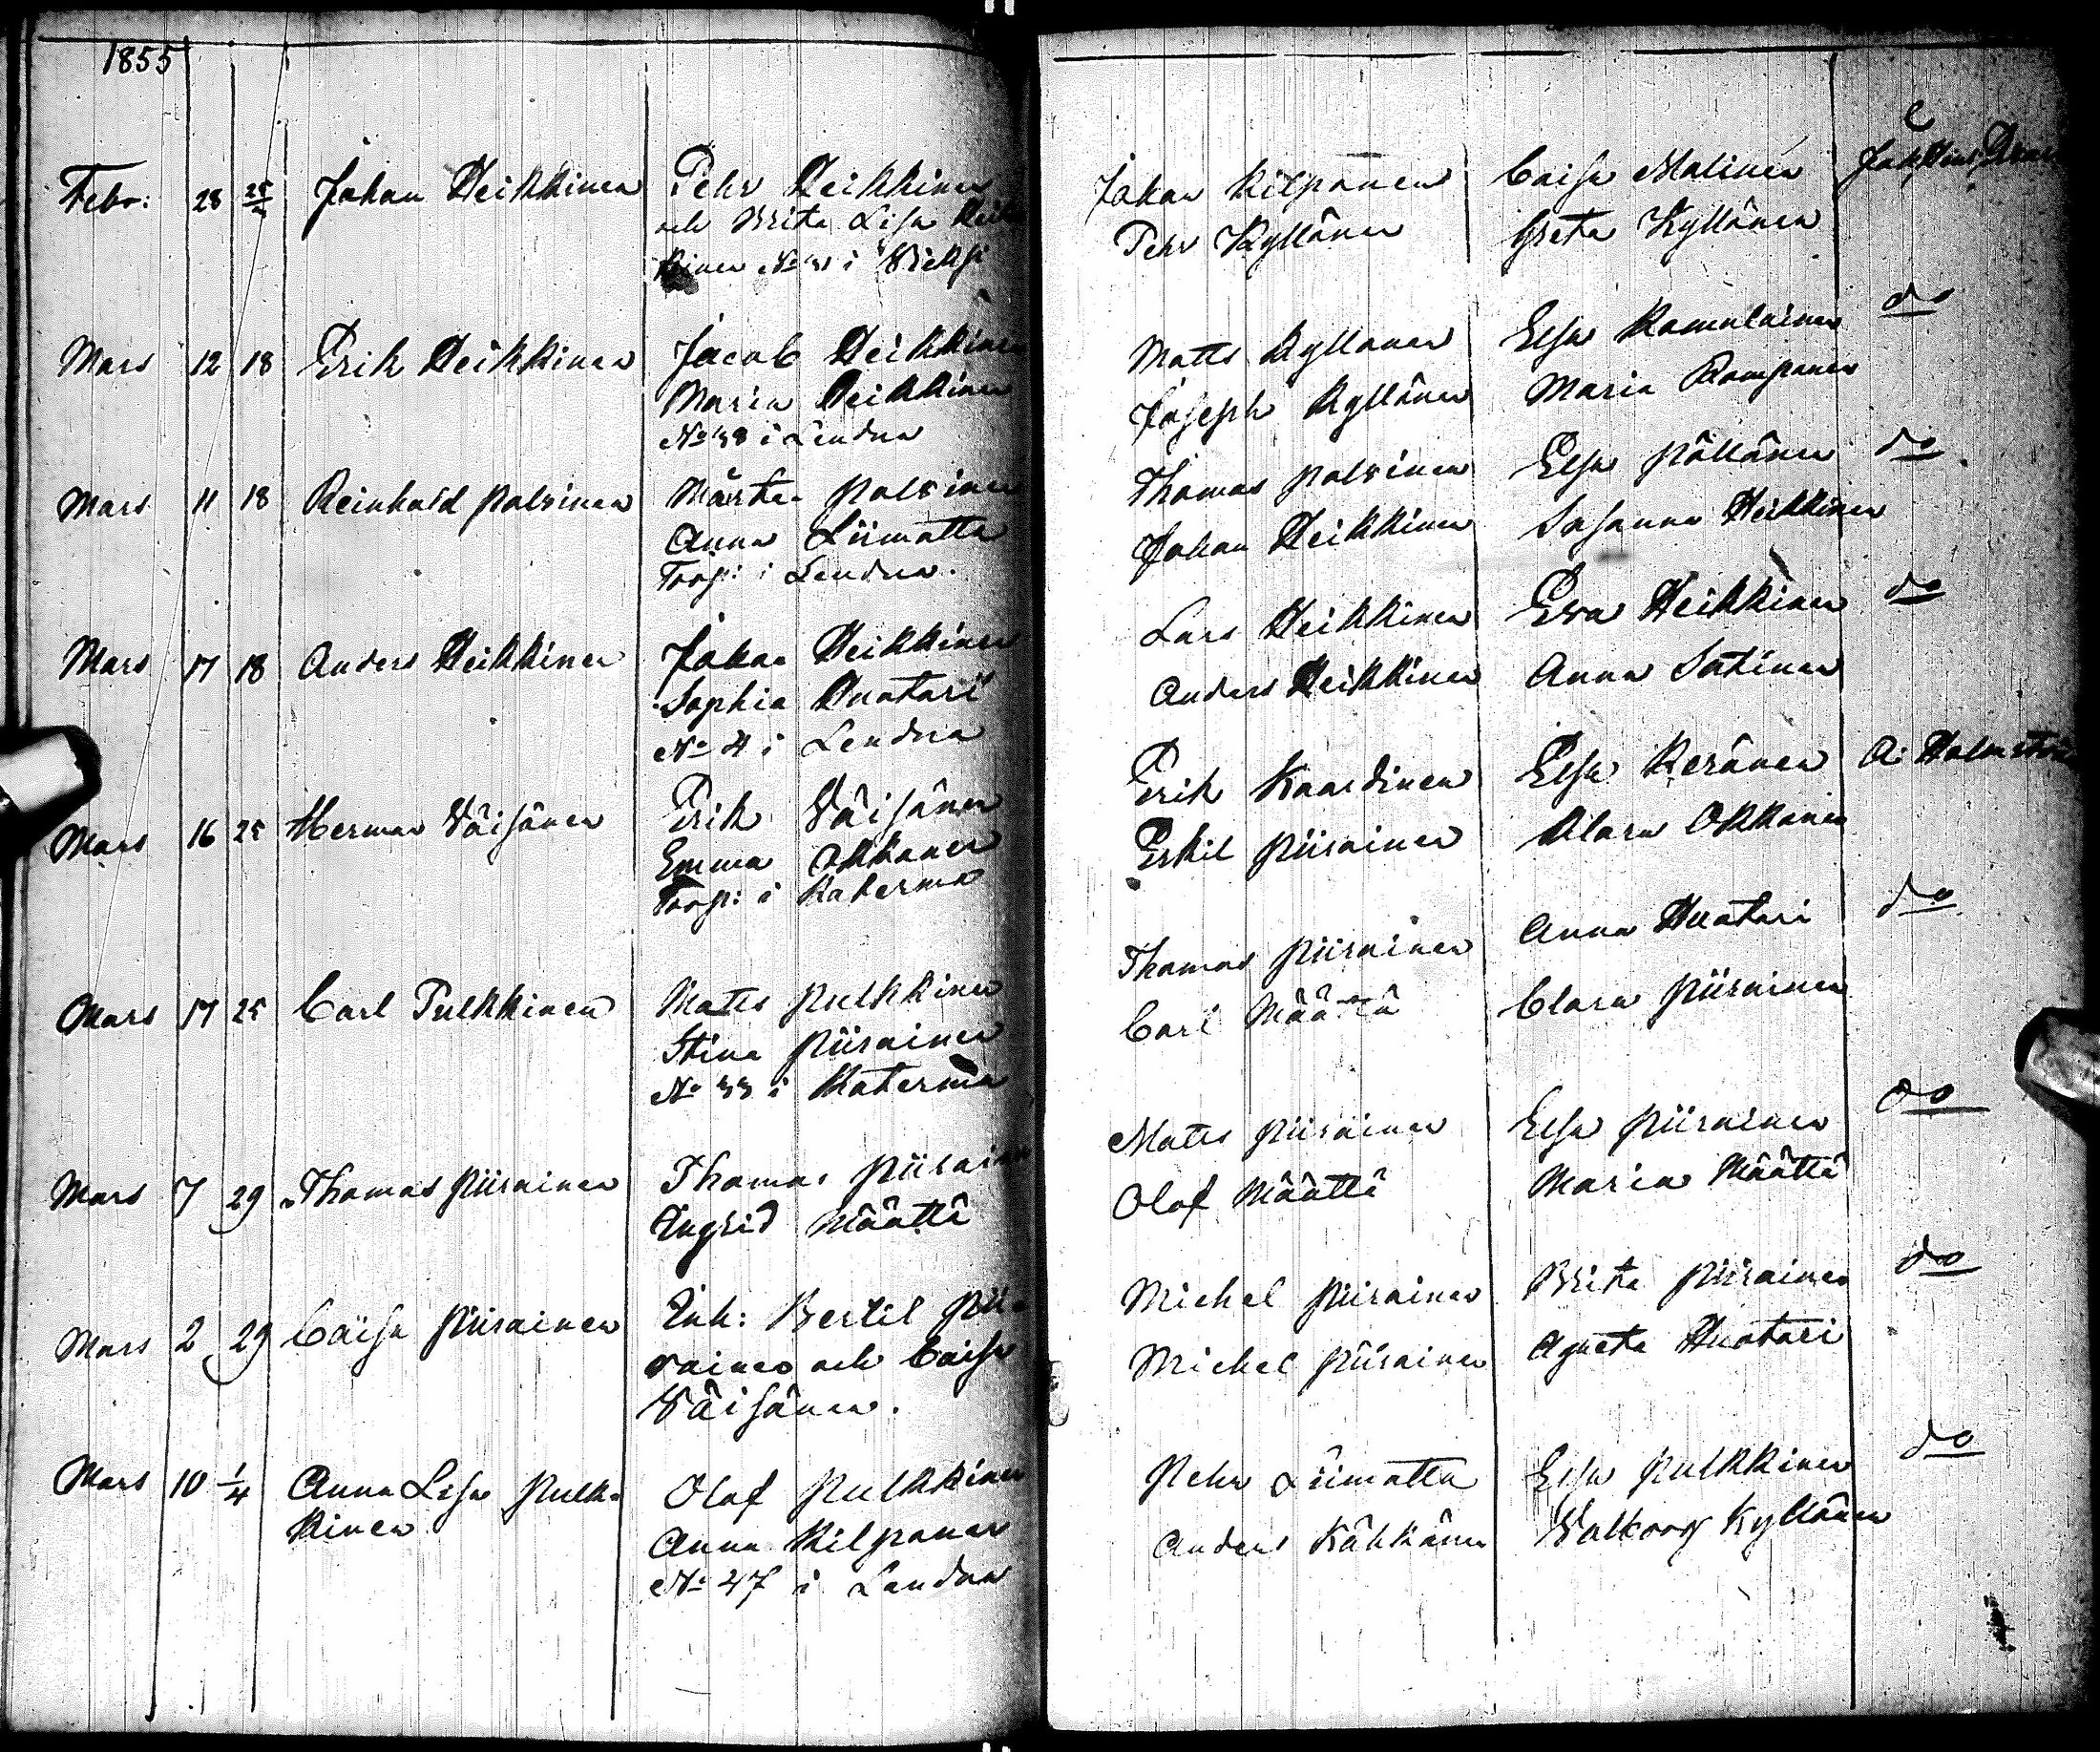 1855
Febr: 28 25/2 Johan Heikkinen Pehr Heikkinen
och Brita Lisa Heik
kinen No 31 i Vieksi
Mars 12 18 Erik Heikkinen Jacob Heikkinen
Maria Heikkinen
No 38 i Lendua
Mars 11 18 Reinhold Palvinen Mårten Palvinen
Anna Liimatta
Torp: i Lendua.
Mars 17 18 Anders Heikkinen Johan Heikkinen
Sophia Huotari
No 4 i Lendua
Mars 16 25 Herman Väisänen Erik Väisänen
Emma Okkonen
Torp: i Katerma
Mars 17 25 Carl Pulkkinen Matts Pulkkinen
Stina Piirainen
No 33 i Katerma
Mars 7 29 Thomas Piirainen Thomas Piirainen
Ingrid Määttä
Mars 2 29 Caisa Piirainen Inh: Bertil Pii-
rainen och Caisa
Väisänen.
Mars 10 1/4 Anna Lisa Pulk-
kinen Olof Pulkkinen
Anna Kilponen
No 47 i Lendua
Johan Kilponen Caisa Malinen
Pehr Kyllönen Greta Kyllönen
Matts Kyllönen Elsa Komulainen do
Joseph Kyllönen Maria Komponen
Thomas Palvinen Elsa Pöllänen do
Johan Heikkinen Susanna Heikkinen
Lars Heikkinen Eva Heikkinen do
Anders Heikkinen Anna Sutinen
Erik Kaardinen Elsa Keränen A: Holmström
Eskil Piirainen Klara Okkonen
Thomas Piirainen Anna Huotari do
Carl Määttä Clara Piirainen
Matts Piirainen Elsa Piirainen do
Olof Määttä Maria Määttä
Michel Piirainen Brita Piirainen do
Michel Piirainen Agneta Huotari
Pehr Liimatta Elsa Pulkkinen do
Anders Kähkönen Walborg Kyllönen